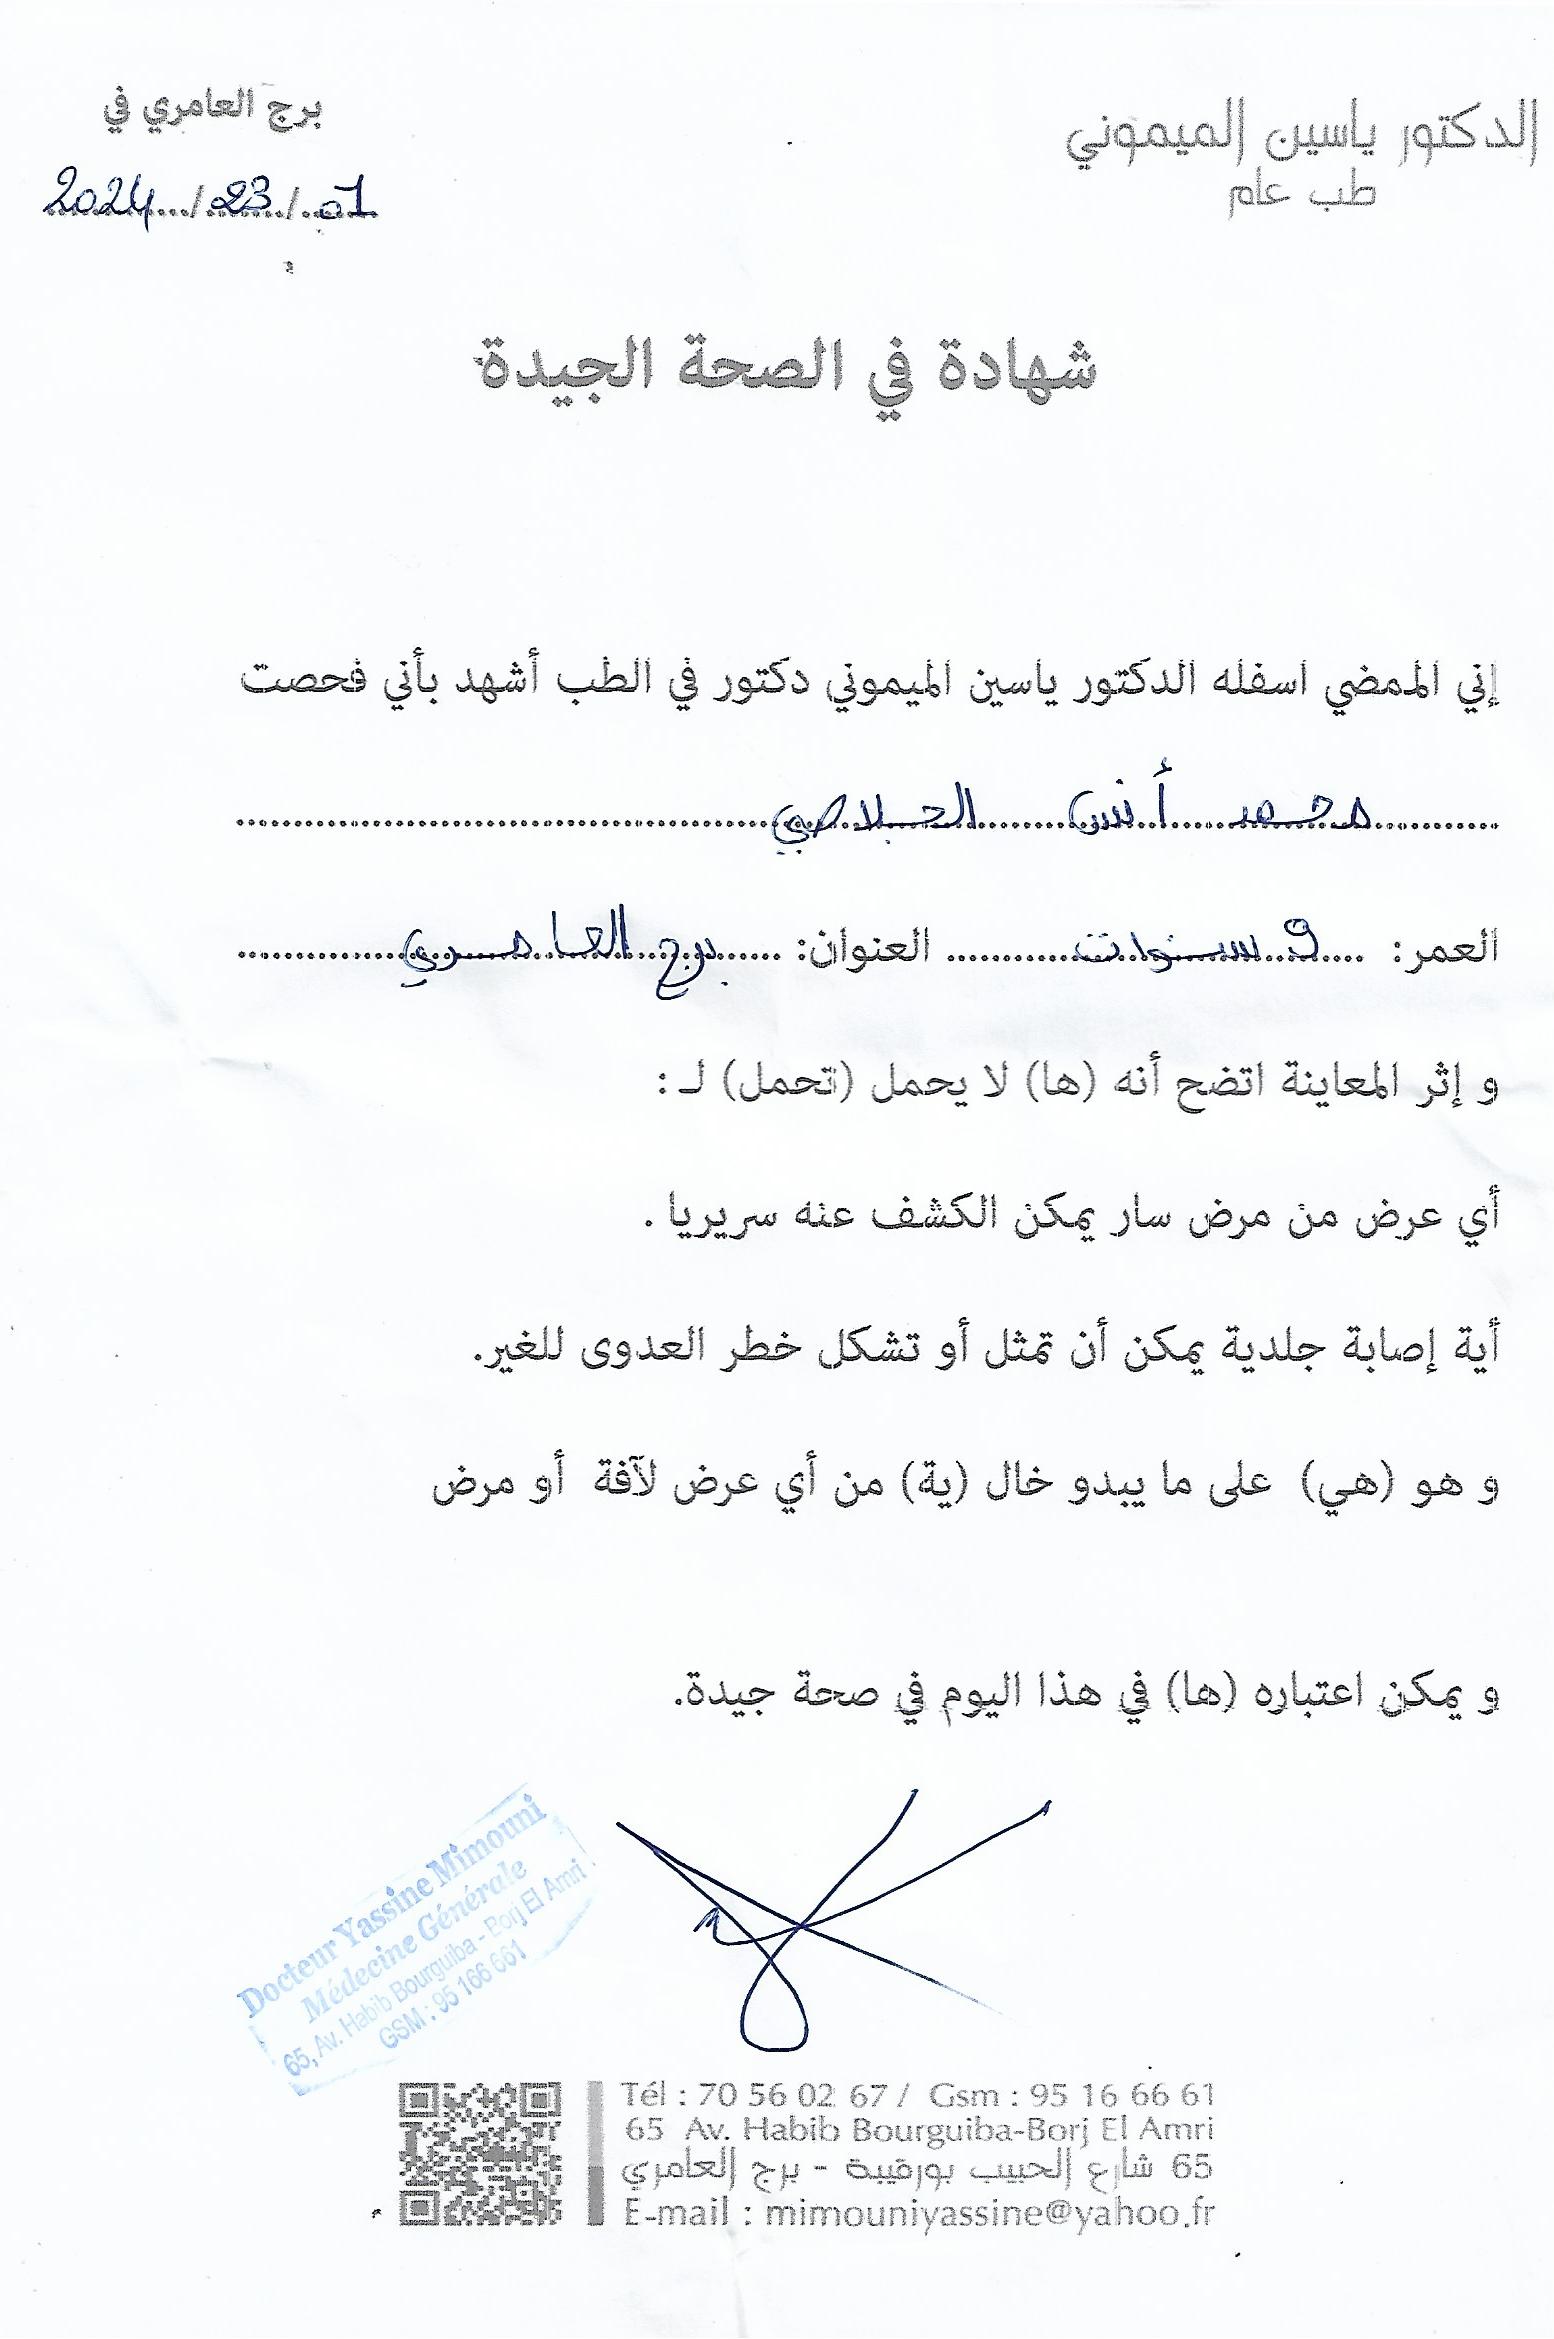 الدكتور ياسين الميموني
طب عام
برج العامري في
2024/23/01
شهادة في الصحة الجيدة
إني الممضي اسفله الدكتور ياسين الميموني دكتور في الطب أشهد بأني فحصت
محمد أنس
العمر: 9 سنوات العنوان: برج العامري
و إثر المعاينة اتضح أنه (ها) لا يحمل (تحمل) لـ :
أي عرض من مرض سار يمكن الكشف عنه سريريا .
أية إصابة جلدية يمكن أن تمثل أو تشكل خطر العدوى للغير.
و هو (هي) على ما يبدو خال (ية) من أي عرض لآفة أو مرض
و يمكن اعتباره (ها) في هذا اليوم في صحة جيدة.
Docteur Yassine Mimouni
Médecine Générale
65, Av. Habib Bourguiba - Borj El Amri
GSM : 95 166 661
Tél : 70 56 02 67 / Gsm : 95 16 66 61
65 Av. Habib Bourguiba-Borj El Amri
65 شارع الحبيب بورقيبة - برج العامري
E-mail : mimouniyassine@yahoo.fr